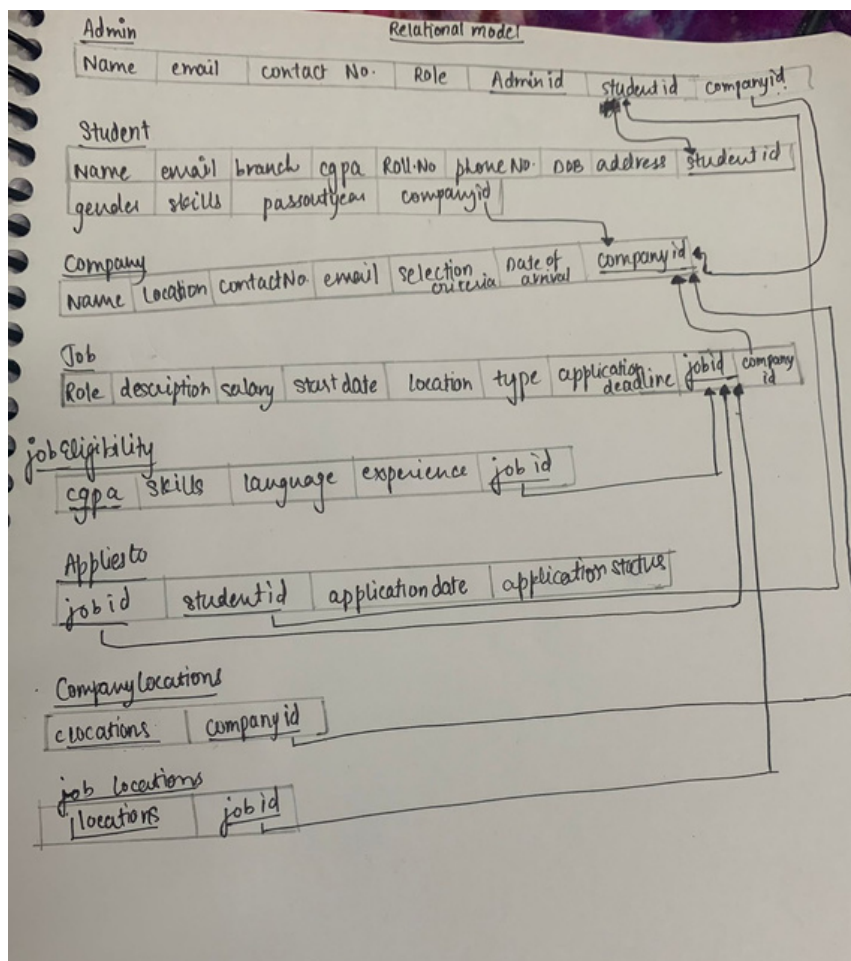 Admin Relational model
Name email contact No. Role Adminid studentid companyid
Student
Name email branch cgpa Roll.No phoneNo. DOB address studentid
gender skills passoutyear companyid
Company
Name Location contactNo. email selection criteria Date of arrival companyid
Job
Role description salary start date location type application deadline jobid company id
jobEligibility
cgpa skills language experience job id
Appliesto
job id studentid application date application status
Companylocations
clocations companyid
job locations
jlocations jobid